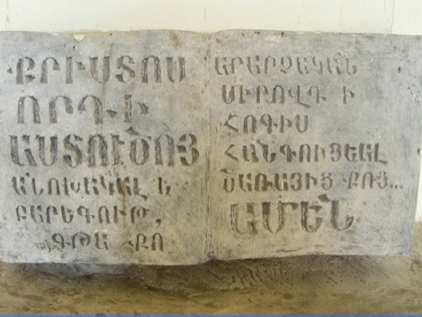 ՔՐԻՍՏՈՍ
ՈՐԴԻ
ԱՍՏՈՒԾՈՅ
ԱՆՈԽԱԿԱԼ Ե
ԲԱՐԵԳՈՒԹ,
ԳԹԱ ՔՈ
ԱՐԱՐՉԱԿԱՆ
ՍԻՐՈՎԴ Ի
ՀՈԳԻՍ
ՀԱՆԳՈՒՑԵԱԼ
ԾԱՌԱՅԻՑ ՔՈՑ...
ԱՄԵՆ